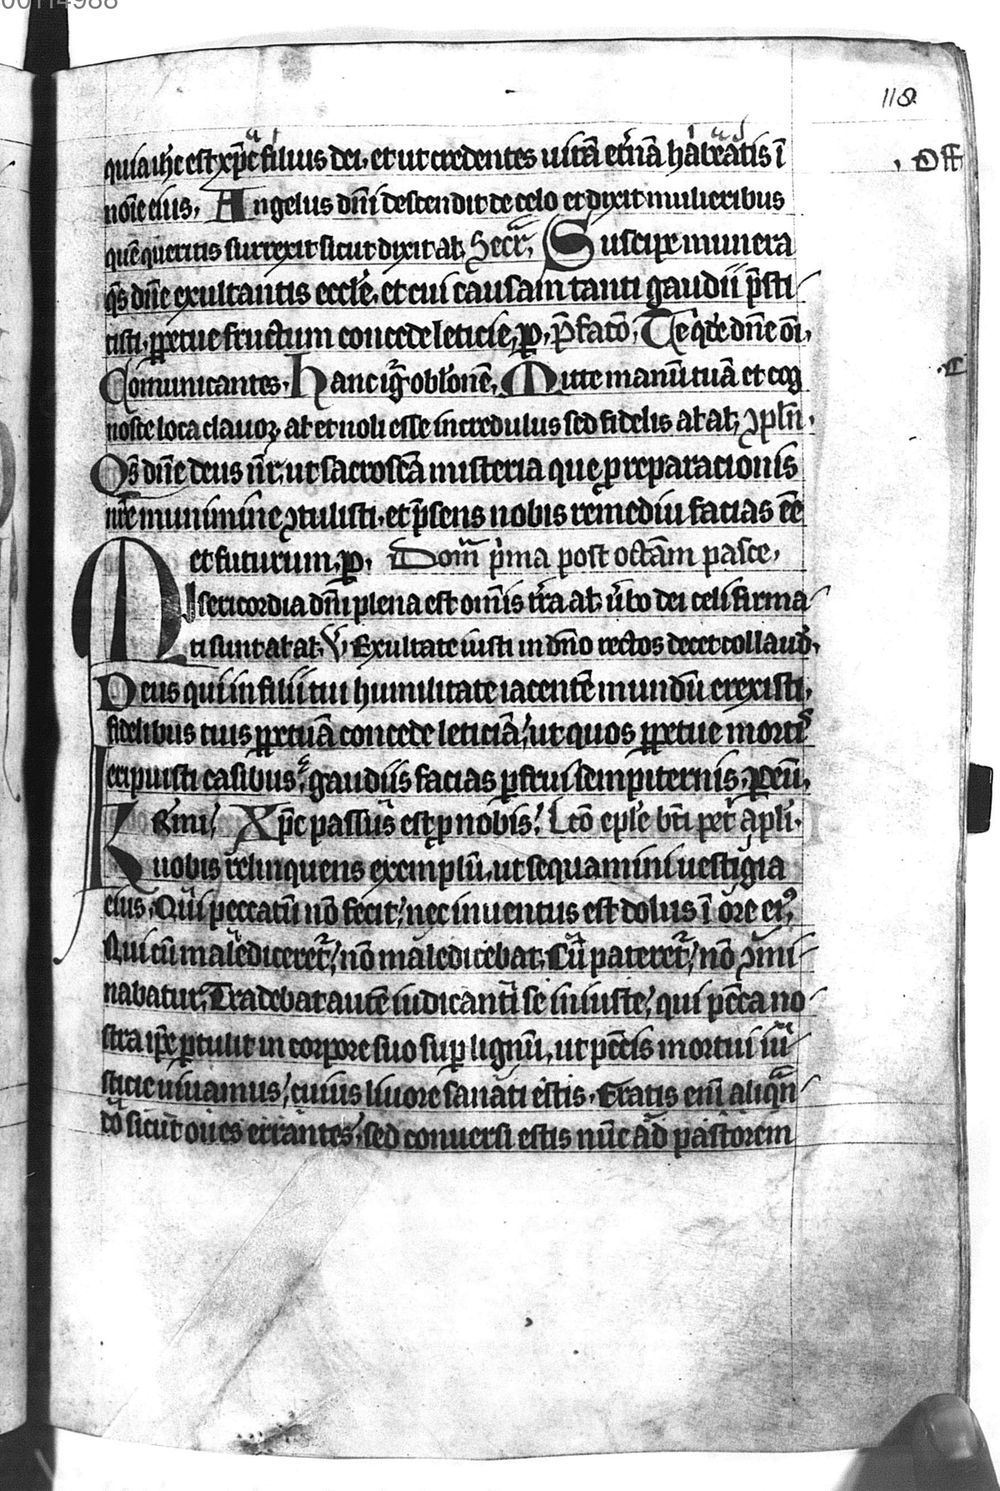 00114988
118
quia ih̄c est xp̄c filius dei. et ut credentes uitā et̄nā habeatis ī
Off
nōīe eius. Angelus dn̄i descendit de celo et dixit mulieribus
quē queritis surrexit sicut dixit al̄. Secr̄. Suscipe munera
q̄s dn̄e exultantis eccl̄e. et cui causam tanti gaudii p̄sti
tisti. ꝑpetue fructum concede leticie. ꝑ. P̄fatō. Te q̄de dn̄e om̄i.
Cōmunicantes. Hanc igr̄ obl̄onē. Mitte manū tuā et cog
nosce loca clauoꝝ al̄ et noli esse incredulus sed fidelis al̄ al̄. ꝯpl̄n.
Qs̄ dn̄e deus nr̄. ut sacroscā misteria que ꝓ reparacionis
nr̄e munimine ꝯtulisti. et p̄sens nobis remediū facias eē
et futurum. ꝑ. Dom̄ p̄ma post octām pasce.
Misericordia dn̄i plena est om̄is tr̄a al̄. ūbo dei celi firma
ti sunt al̄ al̄. V̄ Exultate iusti in dn̄o rectos decet collaud̄.
Deus qui in filii tui humilitate iacentē mundū erexisti.
fidelibus tuis ꝑpetuā concede leticiā. ut quos ꝑpetue mortꝭ
eripuisti casibus. gaudiis facias ꝑfrui sempiternis. ꝑ eū.
Kr̄mi. Xp̄c passus est ꝓ nobis. Lc̄o epl̄e bt̄i pet̄ apl̄i.
uobis relinquens exemplū. ut sequamini uestigia
eius. Qui peccatū nō fecit. nec inuentus est dolus ī ore eiꝰ.
Qui cū malediceret̄. nō maledicebat. Cū pateret̄. nō ꝯmi
nabatur. Tradebat autē iudicanti se iniuste. qui pc̄ca no
stra ip̄e ꝑtulit in corpore suo suꝑ lignū. ut pc̄cis mortui iu
sticie uiuamus. cuius liuore sanati estis. Eratis enī aliqn̄
do sicut oues errantes. sed conuersi estis nūc ad pastorem